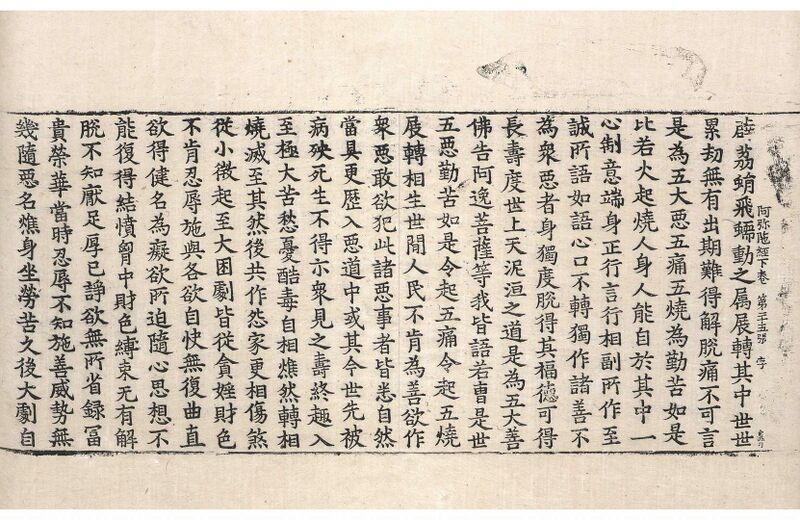 薜荔蜎飛蠕動之属展轉其中世世
阿弥陁經下卷 第二十五張 字
累劫無有出期難得解脫痛不可言
是為五大惡五痛五燒為勤苦如是
比若火起燒人身人能自於其中一
心制意端身正行言行相副所作至
誠所語如語心口不轉獨作諸善不
為衆惡者身獨度脫得其福德可得
長壽度世上天泥洹之道是為五大善
佛告阿逸菩薩等我皆語若曹是世
五惡勤苦如是令起五痛令起五燒
展轉相生世閒人民不肯為善欲作
衆惡敢欲犯此諸惡事者皆悉自然
當具更歷入惡道中或其今世先被
病殃死生不得示衆見之壽終趣入
至極大苦愁憂酷毒自相燋然轉相
燒滅至其然後共作怨家更相傷煞
從小微起至大困劇皆從貪婬財色
不肯忍辱施與各欲自快無復曲直
欲得健名為癡欲所迫隨心思想不
能復得結憤胷中財色縛束无有解
脫不知厭足厚已諍欲無所省錄冨
貴榮華當時忍辱不知施善威勢無
幾隨惡名燋身坐勞苦久後大劇自